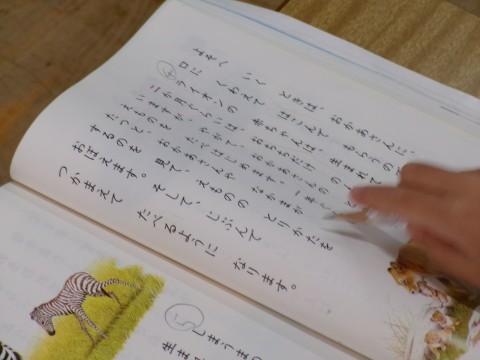 よそへ いく ときは、おかあさんに、
口に くわえて はこんで もらうので
④ライオンの 赤ちゃんは、生まれて
二か月ぐらいは、おちちだけ のん
いますが、やがて、おかあさんの
えものを たべはじめます。一年
たつと、おかあさんや なかまが
するのを 見て、えものの とりかたを
おぼえます。そして、じぶんで
つかまえて たべるように なります。
⑤しまうまの
生ま